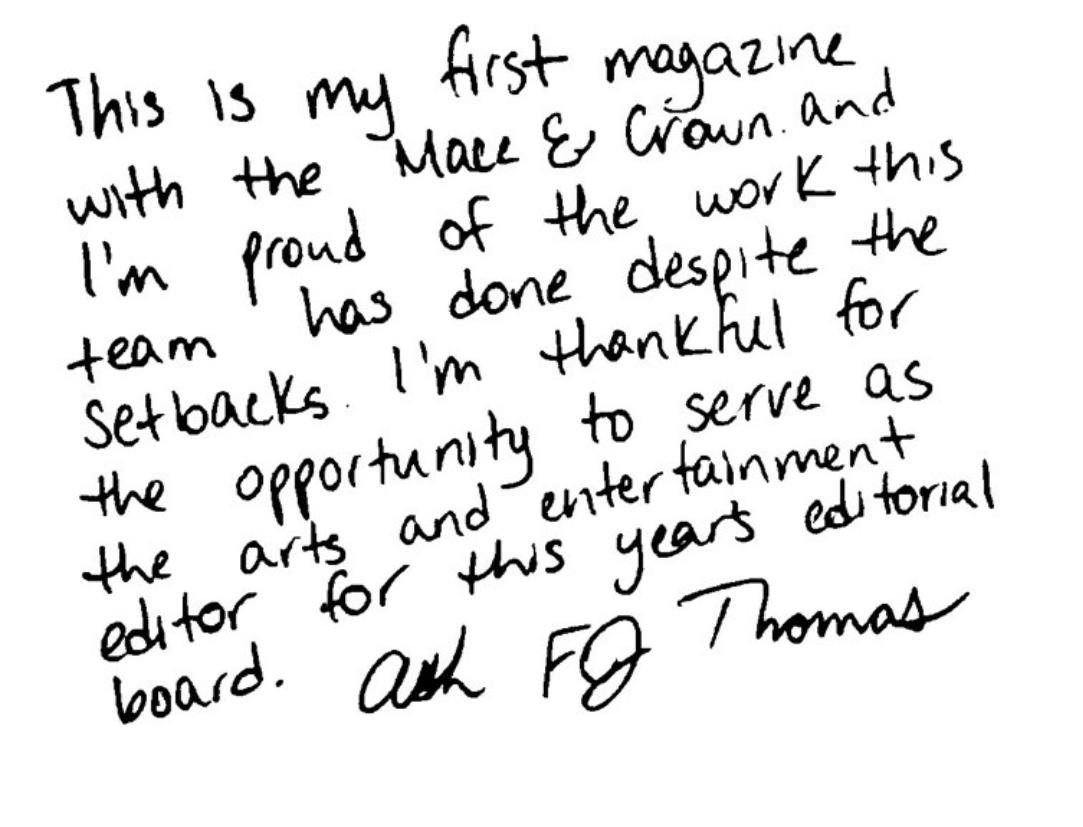 This is my first magazine
with the Mace & Crown. and
I'm proud of the work this
team has done despite the
setbacks. I'm thankful for
the opportunity to serve as
the arts and entertainment
editor for this year's editorial
board. Ash FJ Thomas